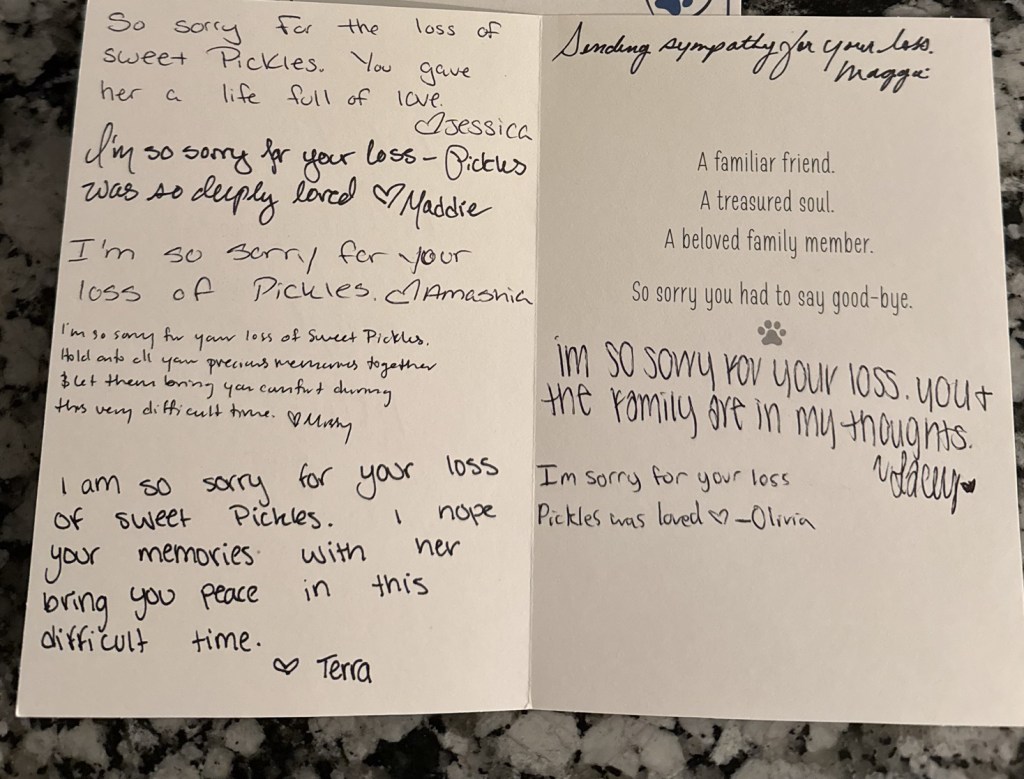 So sorry for the loss of
sweet Pickles. You gave
her a life full of love.
♡Jessica
I'm so sorry for your loss – Pickles
was so deeply loved ♡Maddie
I'm so sorry for your
loss of Pickles. ♡Amashia
I'm so sorry for your loss of Sweet Pickles.
Hold onto all your precious memories together
& let them bring you comfort during
this very difficult time. ♡
I am so sorry for your loss
of sweet Pickles. I hope
your memories with her
bring you peace in this
difficult time.
♡ Terra
Sending sympathy for your loss.
Maggie
A familiar friend.
A treasured soul.
A beloved family member.
So sorry you had to say good-bye.
im so sorry for your loss. you +
the family are in my thoughts.
Lacey♥
Im sorry for your loss
Pickles was loved ♡ –Olivia